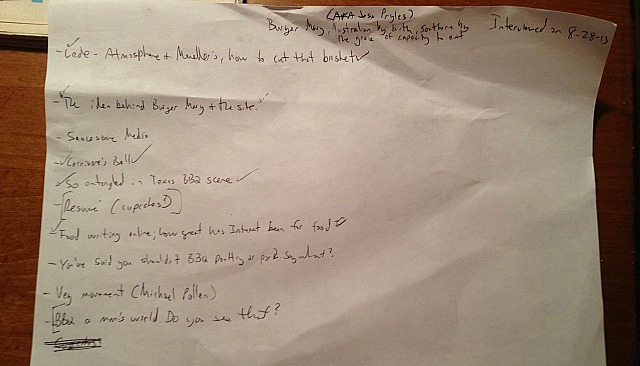 (AKA Jess Pryles)
Burger Mary, Australian by birth, Southern by Interviewed on 8-28-13
the grace of capacity to eat
- Cede - Atmosphere + Mueller's, how to cut that brisket
- The idea behind Burger Mary + the site.
- Saucesome Media
- Carnivore's Ball
- So entangled in Texas BBQ scene
- [Resumé (cupcakes?)]
- Food writing online; how great has Internet been for food
- You've said you shouldn't BBQ poultry or pork say what?
- Veg movement (Michael Pollen)
- [BBQ a man's world Do you see that?